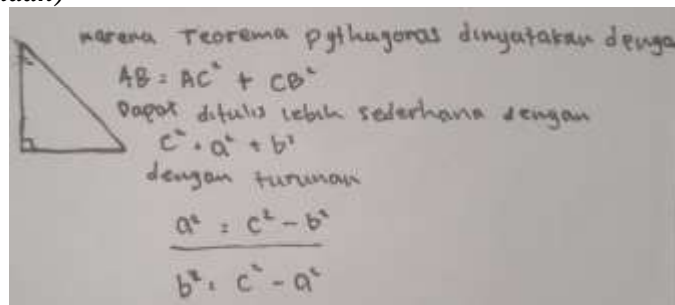 karena Teorema pythagoras dinyatakan denga
AB = AC² + CB²
Dapat ditulis lebih sederhana dengan
c² = a² + b²
dengan turunan
a² = c² - b²
b² = c² - a²